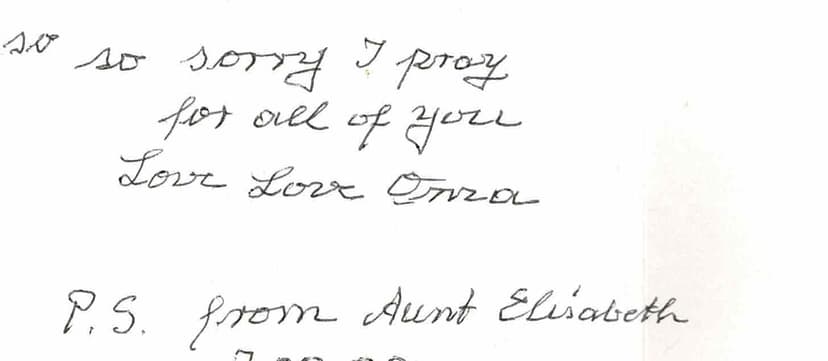 so so sorry I pray
for all of you
Love Love Oma
P.S. from Aunt Elisabeth